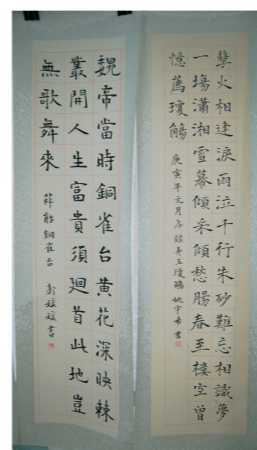 孽火相逢淚雨泣千行朱砂難忘相識夢
一場瀟湘雪幕傾采傾愁腸春至樓空曾
憶薦瓊觴
庚寅年元月冬錄 玉瓊觴 姚宇希書
魏帝當時銅雀台黃花深映棘
叢開人生富貴須迴首此地豈
無歌舞來
薛能銅雀台 媛媛書